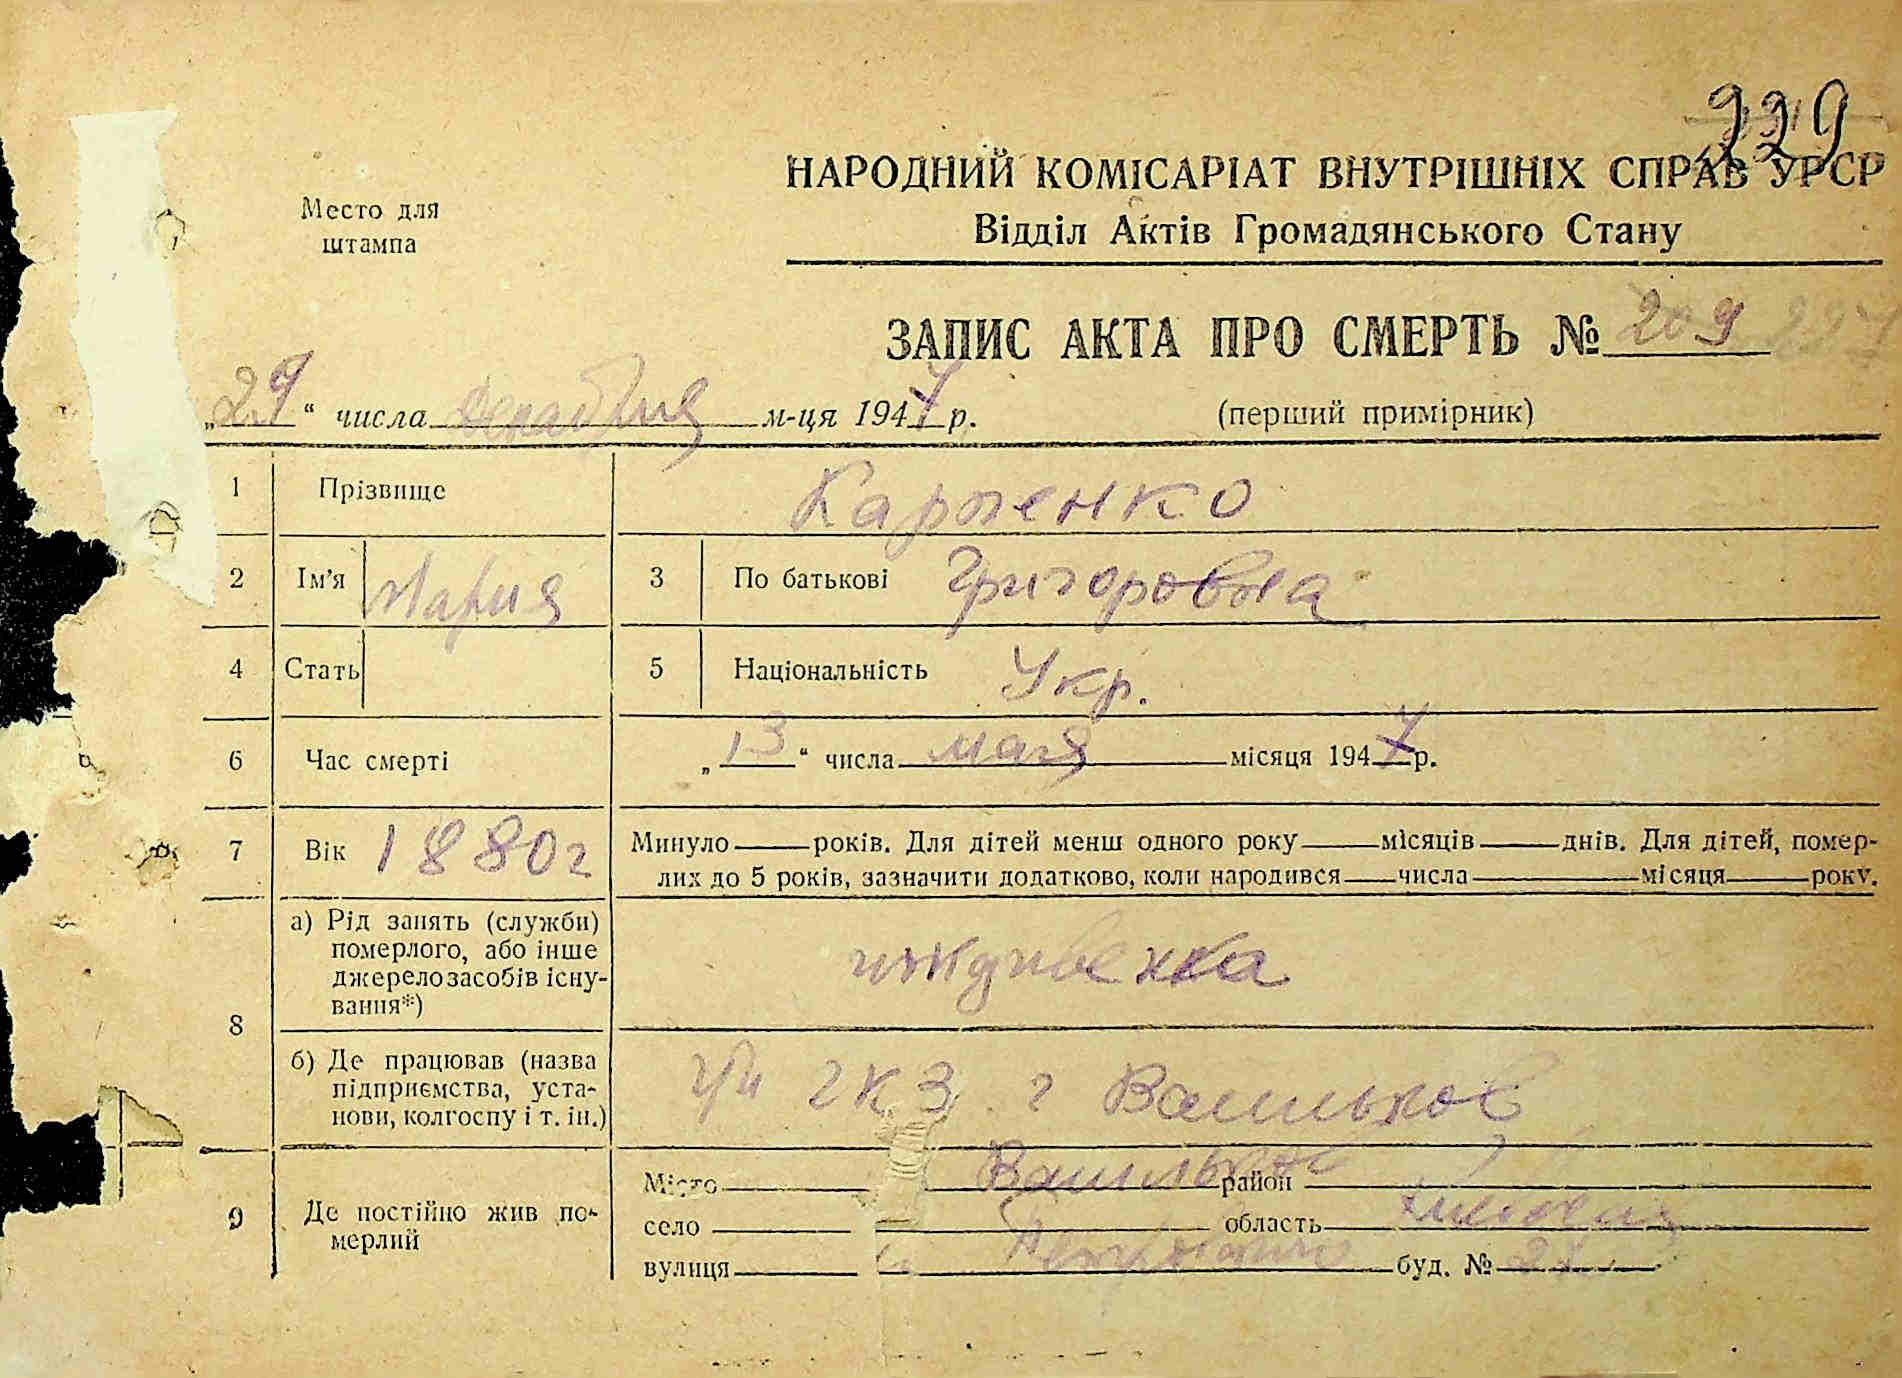 229
НАРОДНИЙ КОМІСАРІАТ ВНУТРІШНІХ СПРАВ УРСР
Место для штампа
Відділ Актів Громадянського Стану
ЗАПИС АКТА ПРО СМЕРТЬ № 209 227
„29“ числа Декабрия м-ця 1947 р. (перший примірник)
1 Прізвище Карпенко
2 Ім'я Мария 3 По батькові Григоровна
4 Стать 5 Національність Укр.
6 Час смерті „13“ числа мая місяця 1947 р.
7 Вік 1880 г Минуло років. Для дітей менш одного року місяців днів. Для дітей, помер-
лих до 5 років, зазначити додатково, коли народився числа місяця року.
8 а) Рід занять (служби)
померлого, або інше
джерело засобів існу-
вання*)
иждивенка
б) Де працював (назва
підприємства, уста-
нови, колгоспу і т. ін.)
при г Васильков
9 Де постійно жив по-
мерлий
Місто Васильков район
село область Киевская
вулиця буд. №